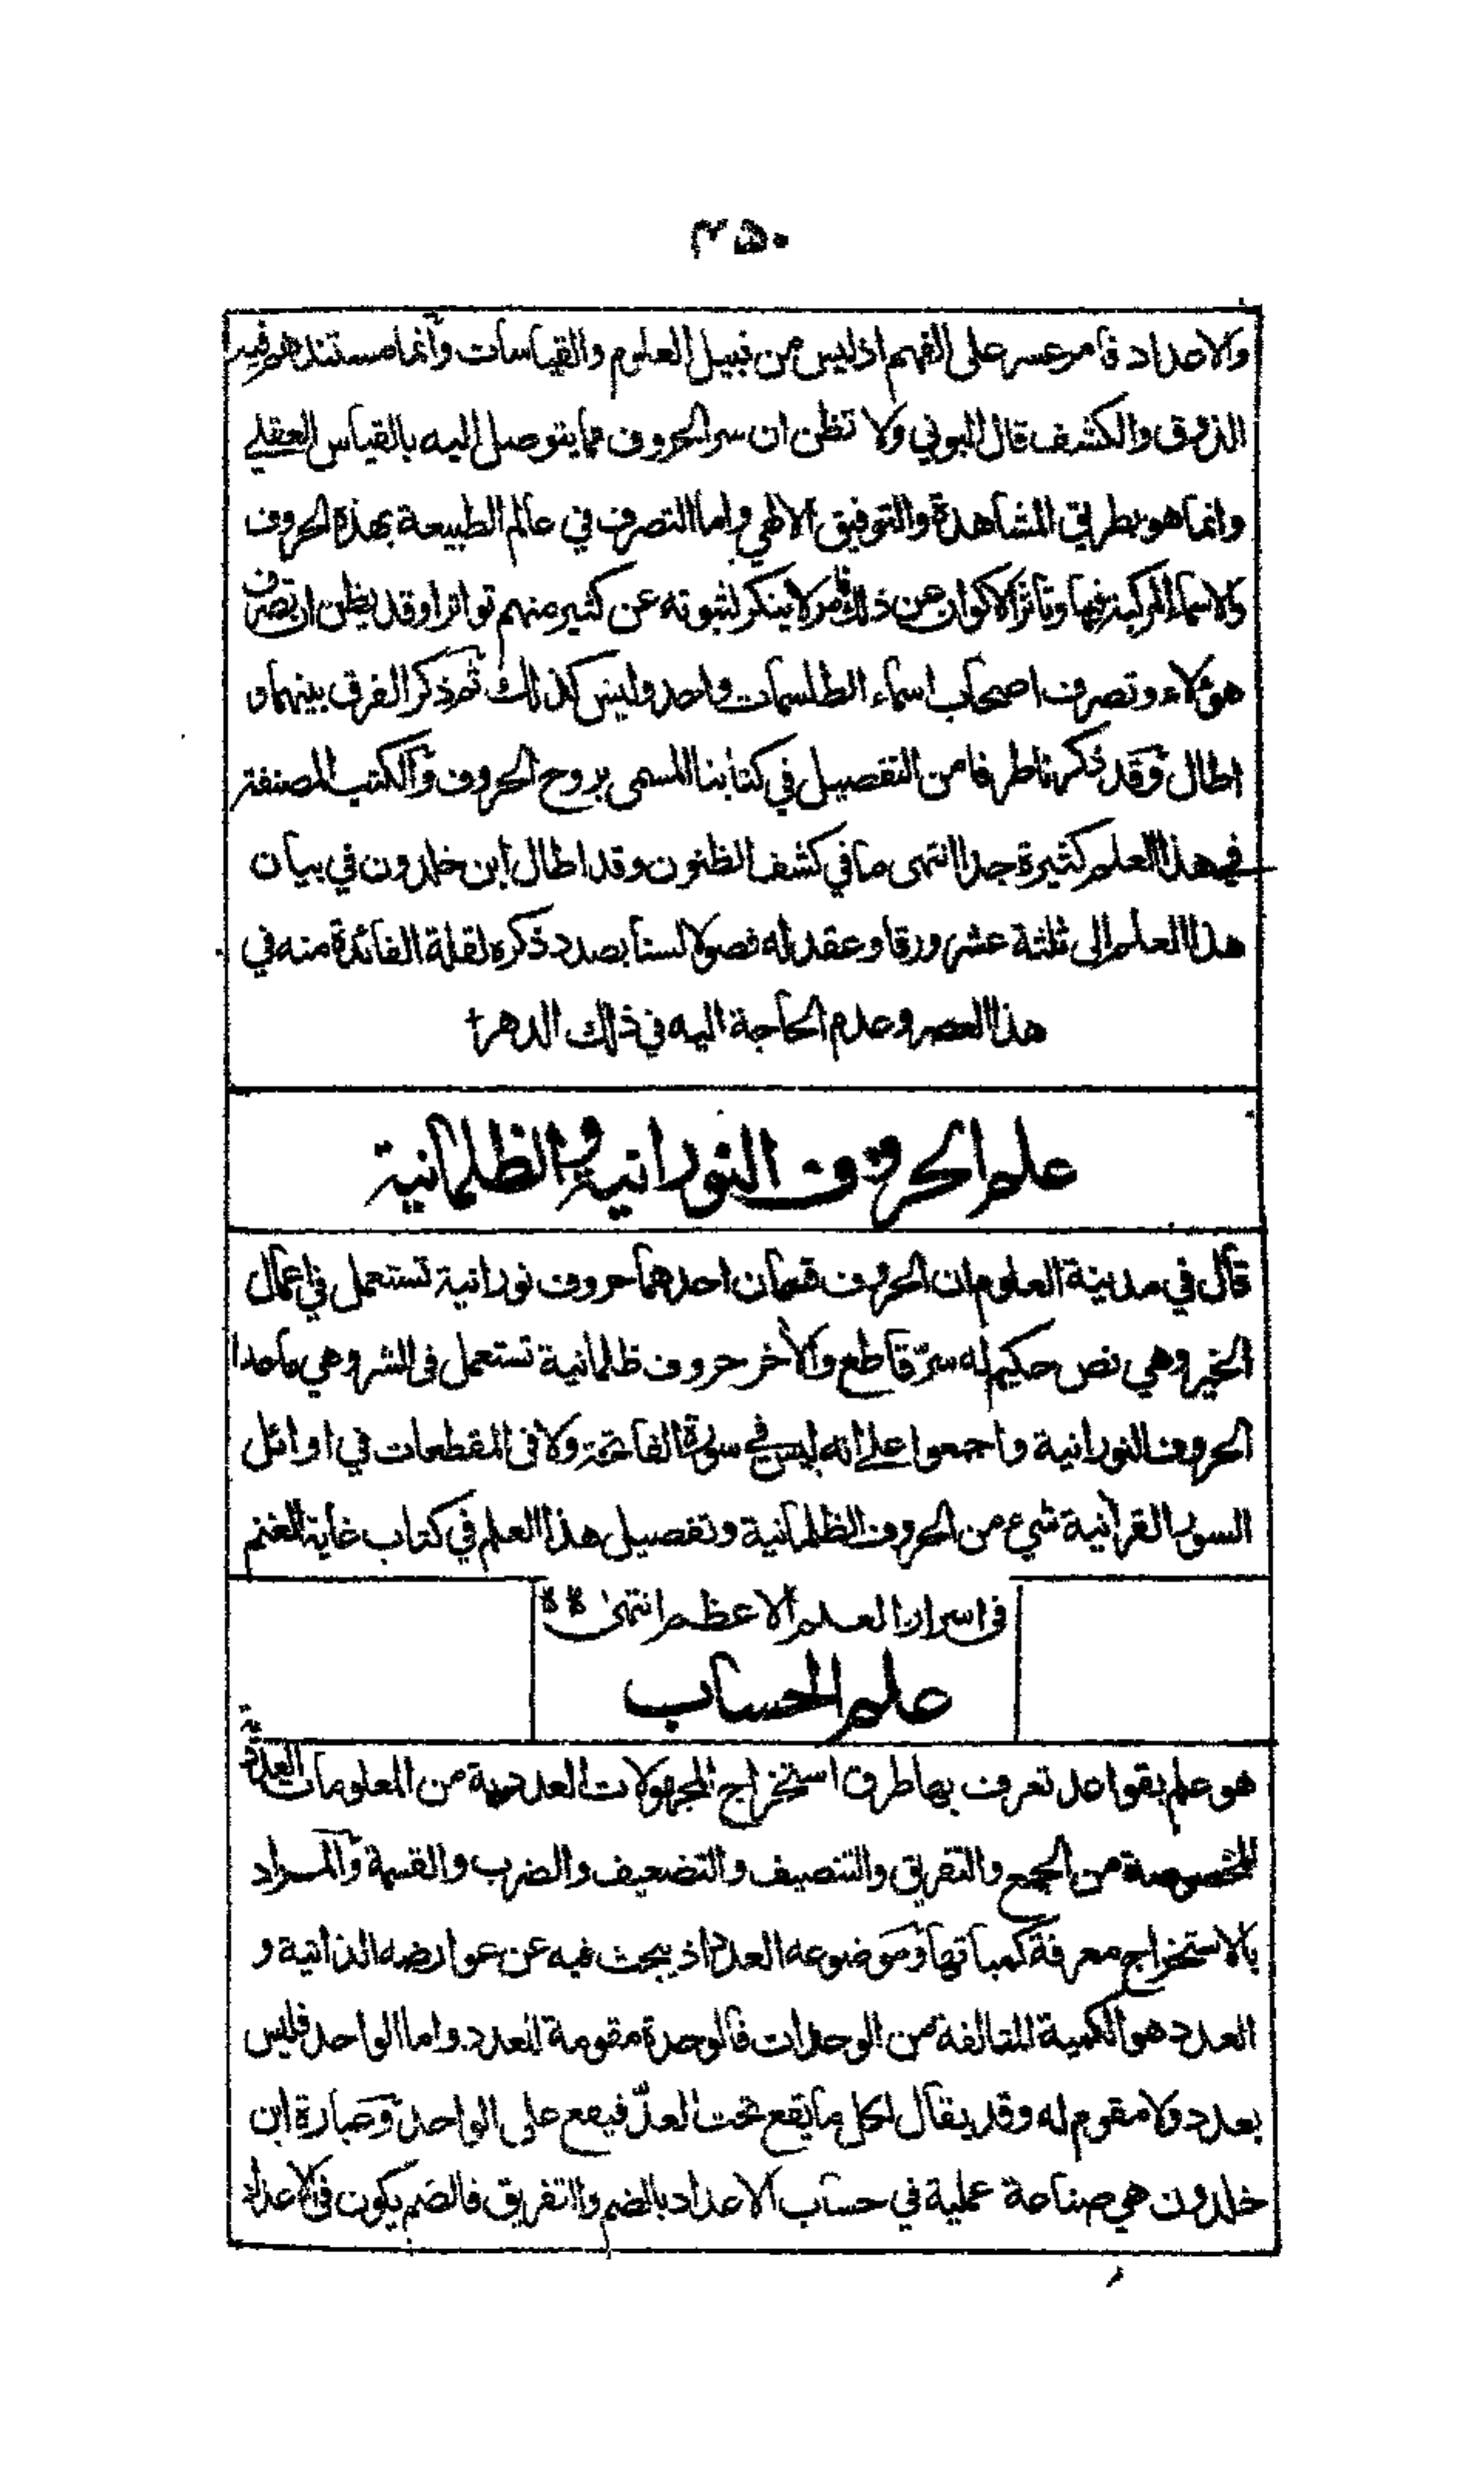 ٤٥٠
والاعداد فامر عسر على الفهم اذ ليس من قبيل العلوم والقياسات وانما مستندهم فيه
الذوق والكشف قال البوني ولا تظن ان سر الحروف مما يتوصل اليه بالقياس العقلي
وانما هو بطريق المشاهدة والتوفيق الالهي واما التصرف في عالم الطبيعة بهذه الحروف
والاسماء المركبة فيها وتاثر الاكوان عن ذلك فامر لا ينكر لثبوته عن كثير منهم تواترا وقد يظن ان تصرف
هؤلاء وتصرف اصحاب اسماء الطلسمات واحد وليس كذلك ثم ذكر الفرق بينهما و
اطال وقد ذكرنا طرفا من التفصيل في كتابنا المسمى بروح الحروف والكتب المصنفة
في هذا العلم كثيرة جدا انتهى ما في كشف الظنون وقد اطال ابن خلدون في بيان
هذا العلم الى ثلثة عشر ورقا وعقد له فصولا لسنا بصدد ذكره لقلة الفائدة منه في
هذا العصر وعدم الحاجة اليه في ذلك الدهر
علم الحروف النورانية والظلمانية
قال في مدينة العلوم ان الحروف قسمان احدهما حروف نورانية تستعمل في اعمال
الخير وهي نص حكيم له سرّ قاطع والآخر حروف ظلمانية تستعمل فى الشر وهي ما عدا
الحروف النورانية واجمعوا على انه ليس في سورة الفاتحة ولا فى المقطعات في اوائل
السور القرآنية شيء من الحروف الظلمانية وتفصيل هذا العلم في كتاب غاية الغنم
فى اسرار العلم الاعظم انتهى
علم الحساب
هو علم بقواعد تعرف بها طرق استخراج المجهولات العددية من المعلومات العددية
المخصوصة من الجمع والتفريق والتنصيف والتضعيف والضرب والقسمة والمراد
بالاستخراج معرفة كمياتها وموضوعه العدد اذ يبحث فيه عن عوارضه الذاتية و
العدد هو الكمية المتالفة من الوحدات فالوحدة مقومة للعدد واما الواحد فليس
بعدد ولا مقوم له وقد يقال لكل ما يقع تحت العدّ فيقع على الواحد وعبارة ابن
خلدون هي صناعة عملية في حساب الاعداد بالضم والتفريق فالضم يكون فى الاعداد